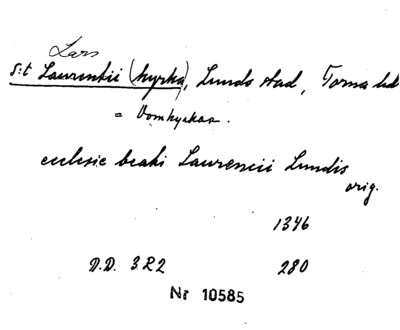 Lars
S:t Laurentii (kyrka), Lunds stad, Torna hd
= Domkyrkan.
ecclesie beati Laurencii Lundis
orig.
1346
D.D. 3R2 280
Nr 10585